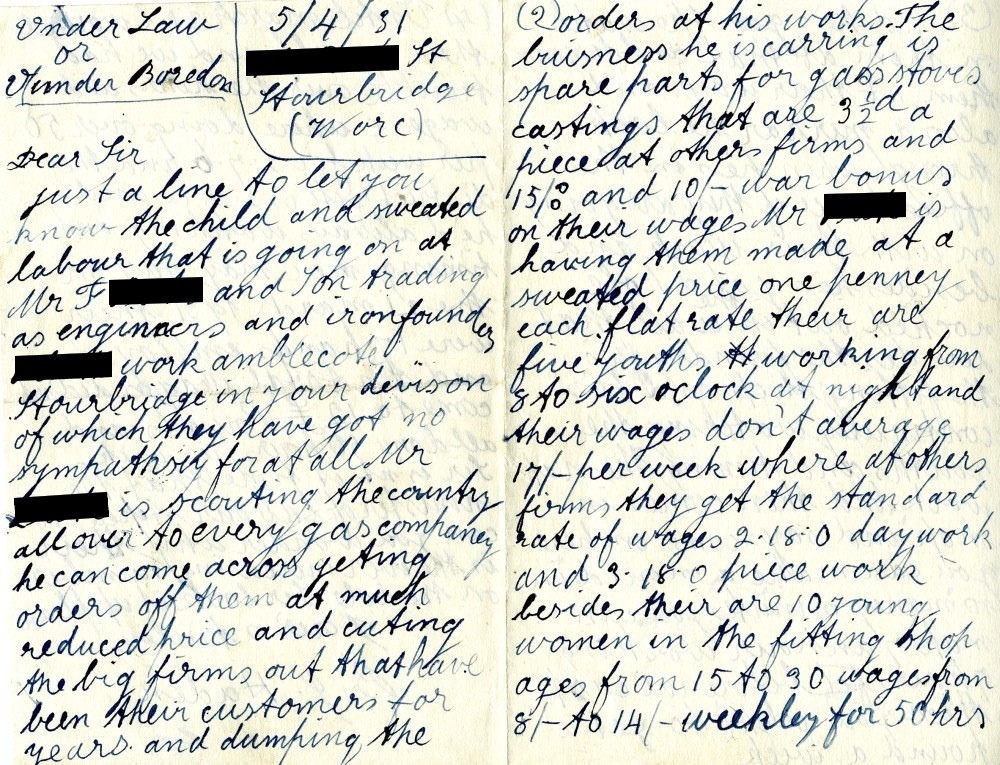 Under Law
or
Under Boredon
5/4/31
St
Stourbridge
(Worc)
Dear Sir
just a line to let you
know the child and sweated
labour that is going on at
Mr F and Son trading
as enginners and ironfounders
work amblecote
Stourbridge in your devison
of which they have got no
sympathsiy for at all. Mr
is scouting the country
all over to every gas company
he can come across geting
orders off them at much
reduced price and cuting
the big firms out that have
been their customers for
years. and dumping the
(2) orders at his works. The
buisness he is carring is
spare parts for gass stoves
castings that are 3½d a
piece at others firms and
15/% and 10/- war bonus
on their wages Mr is
having them made at a
sweated price one penney
each. flat rate their are
five youths working from
8 to six oclock at night and
their wages don't average
17/- per week where at others
firms they get the standard
rate of wages 2-18-0 daywork
and 3-18-0 piece work
besides their are 10 young
women in the fitting shop
ages from 15 to 30 wages from
8/- to 14/- weekley for 50 hrs